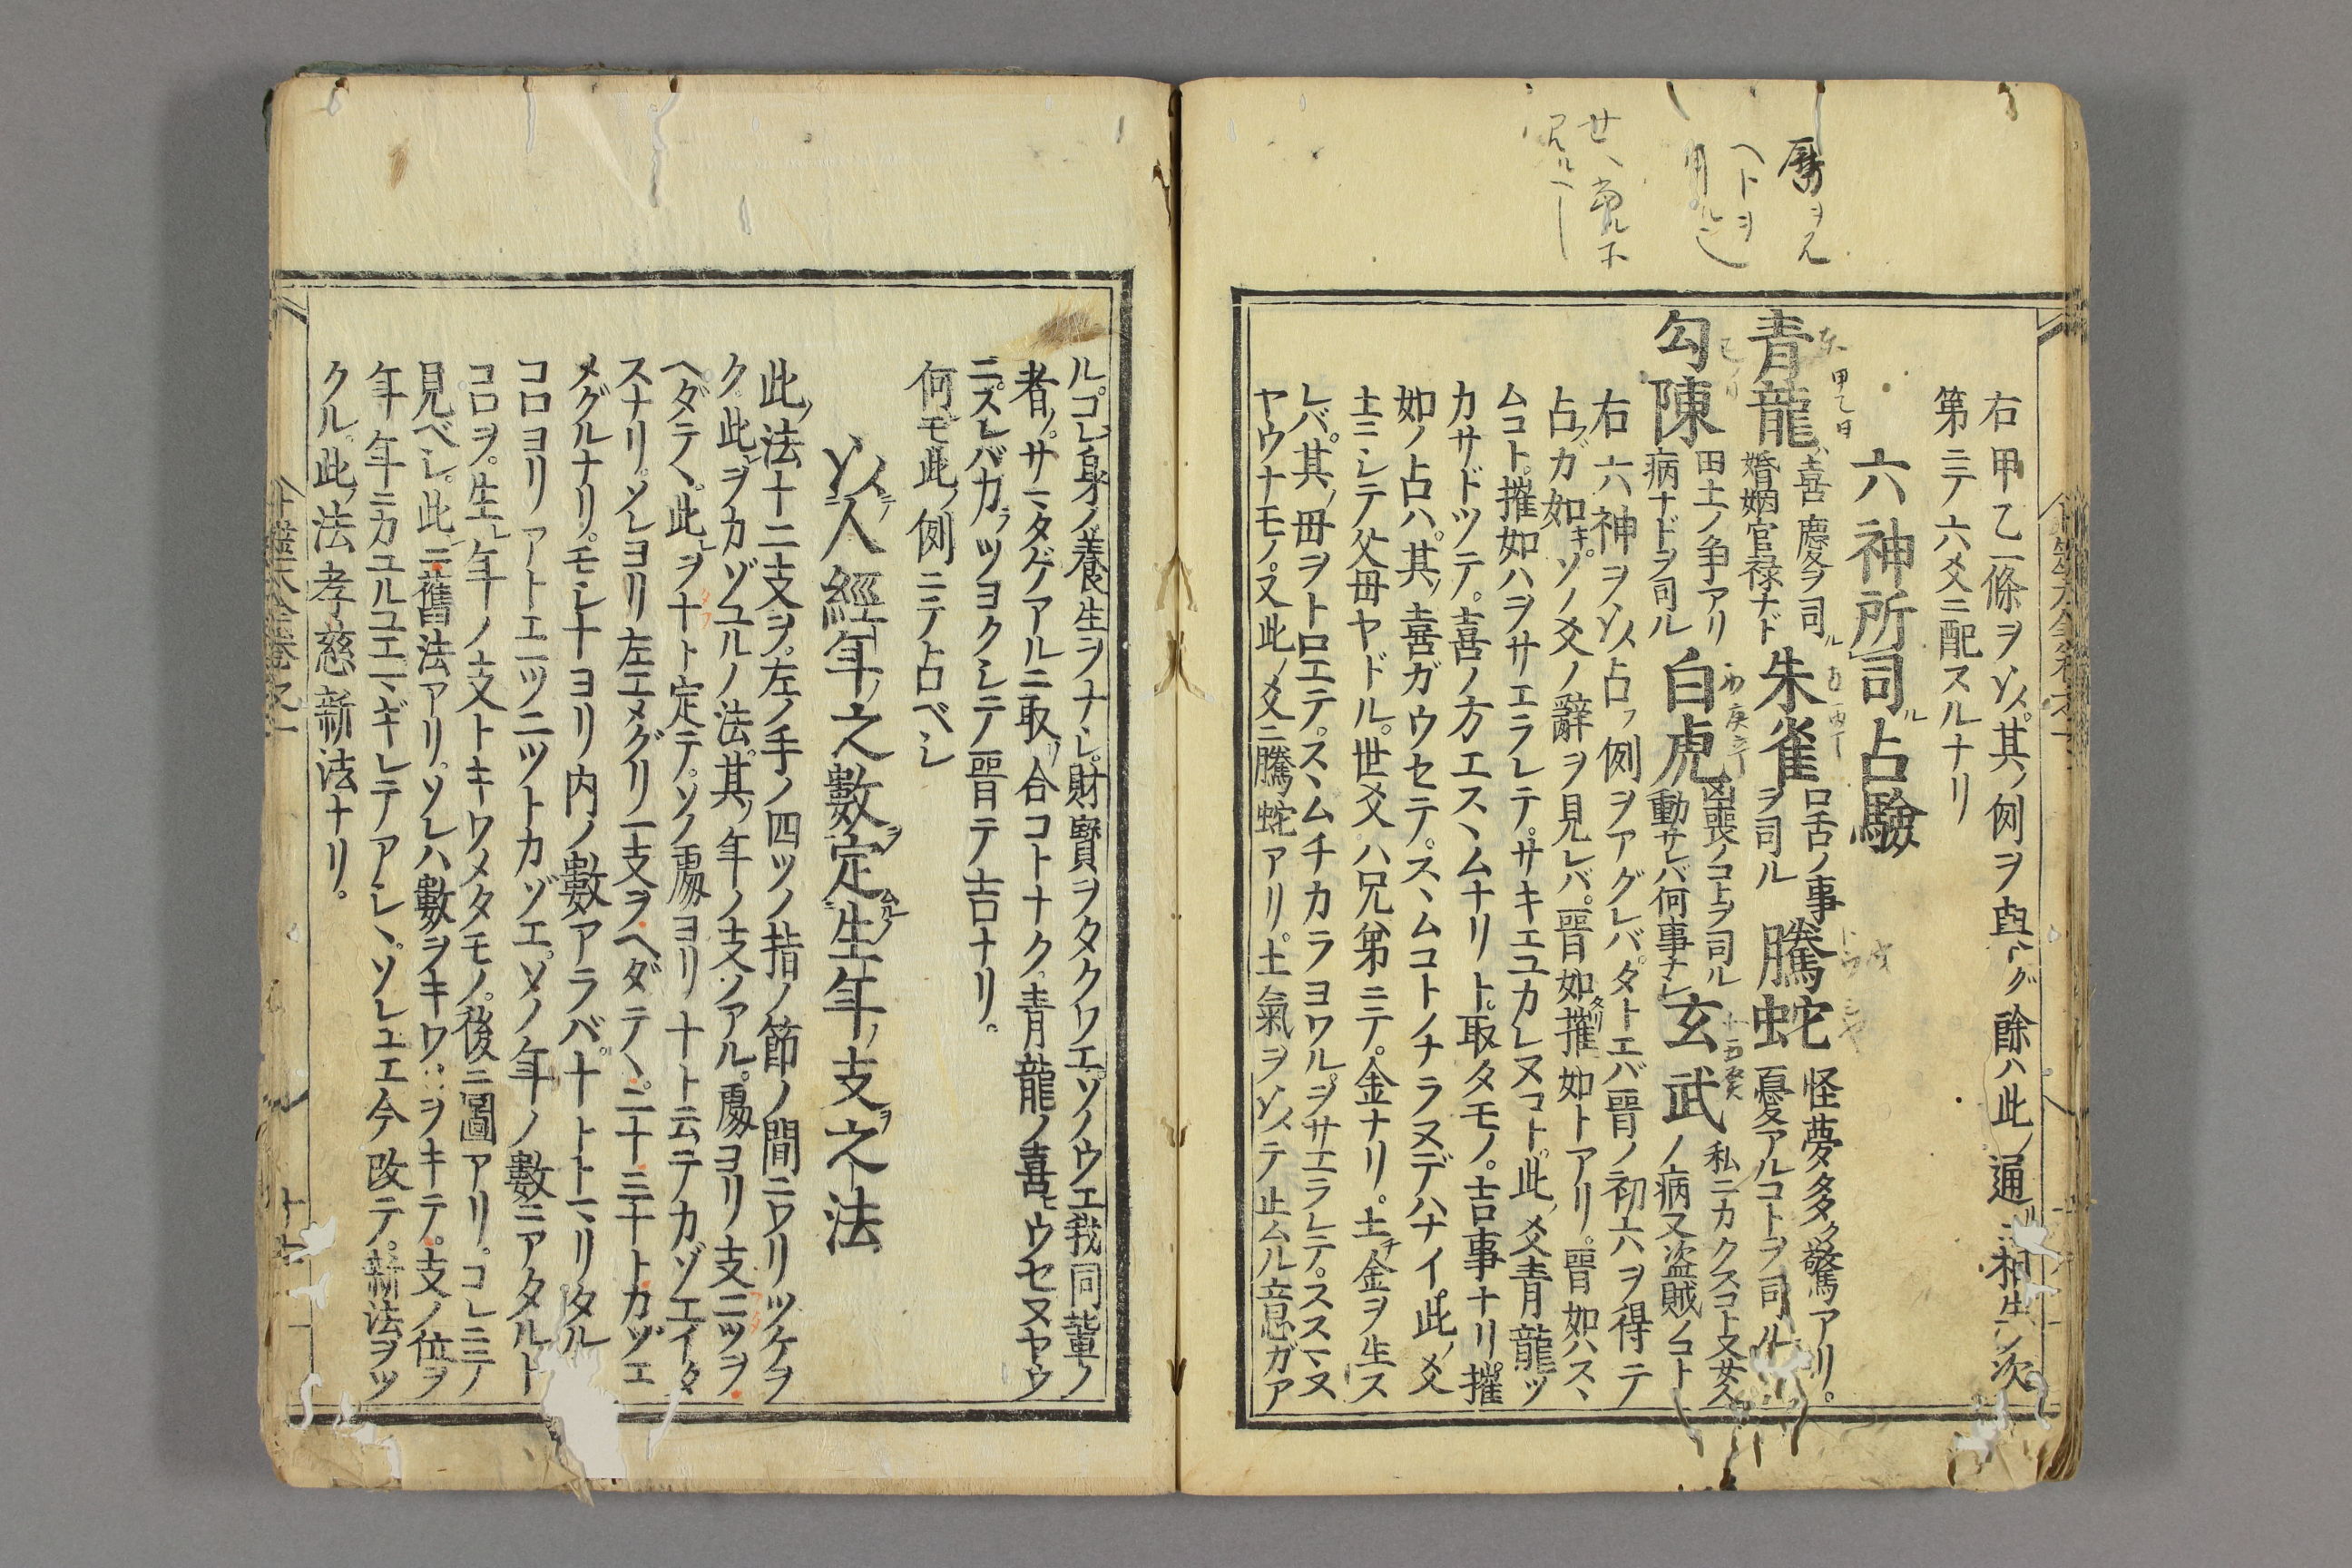 右甲乙一條ヲ以テ其ノ例ヲ與グ餘ハ此ノ通ニ相生シ次
第ニテ六爻ニ配スルナリ
六神所司ル占驗
青龍 喜慶ヲ司ル
婚姻官禄ナド
朱雀 口舌ノ事
ヲ司ル
騰蛇 怪夢多ク驚アリ。
憂アルコトヲ司ル
勾陳 田土ノ争アリ
病ナドヲ司ル
白虎 凶喪ノコトヲ司ル
動サレバ何事ナシ
玄武 私ニカクスコト又女人
ノ病又盗賊ノコト
右六神ヲ以テ占フ例ヲアグレバ。タトエバ晉ノ初六ヲ得テ
占フガ如キ。ソノ爻ノ辭ヲ見レバ。晉如摧如トアリ。晋如ハスヽ
ムコト。摧如ハヲサエラレテ。サキエユカレヌコト。此ノ爻青龍ツ
カサドツテ。喜ノ方エスヽムナリト。取タモノ。吉事ナリ。摧
如ノ占ハ。其ノ喜ガウセテ。スヽムコトノナラヌデハナイ。此ノ爻
土ニシテ父母ヤドル。世爻ハ兄弟ニテ。金ナリ。土ヂ金ヲ生ス
レバ。其ノ毋ヲトロエテ。スヽムチカラヨワル。ヲサエラレテ。ススマヌ
ヤウナモノ。又此ノ爻ニ騰蛇アリ。土氣ヲ以テ止ムル意ガア
ルコレ身ノ養生ヲナシ。財寳ヲタクワエ。ソノウエ我同輩ノ
者ノ。サマタゲアルニ取リ合コトナク。青龍ノ喜モウセヌヤウ
ニスレバ。カヲツヨクシテ晋テ吉ナリ。
何モ此ノ例ニテ占ベシ
以テ人經年ノ之數ヲ定ムル生年ノ支ヲ之法
此ノ法十二支ヲ。左ノ手ノ四ツノ指ノ節ノ間ニワリツケヲ
ク。此レヲカゾユルノ法。其ノ年ノ支ノアル。處ヨリ支ニツヲ
ヘダテヽ。此レヲ十ト定テ。ソノ處ヨリ十ト云テカゾエイタ
スナリ。ソレヨリ左エメグリ一支ヲヘダテヽ。二十三十トカゾエ
メグルナリ。モシ十ヨリ内ノ數アラバ。十トトマリタル
コロヨリアトエ一ツニツトカゾエ。ソノ年ノ數ニアタルト
コロヲ。生レ年ノ支トキワメタモノ。後ニ圖アリ。コレニテ
見ベシ。此レニ舊法アリ。ソレハ數ヲキワメヲキテ。支ノ位ヲ
年年ニカユルユエ。マギレテアシヽ。ソレユエ今改テ。新法ヲツ
クル。此ノ法孝慈新法ナリ。